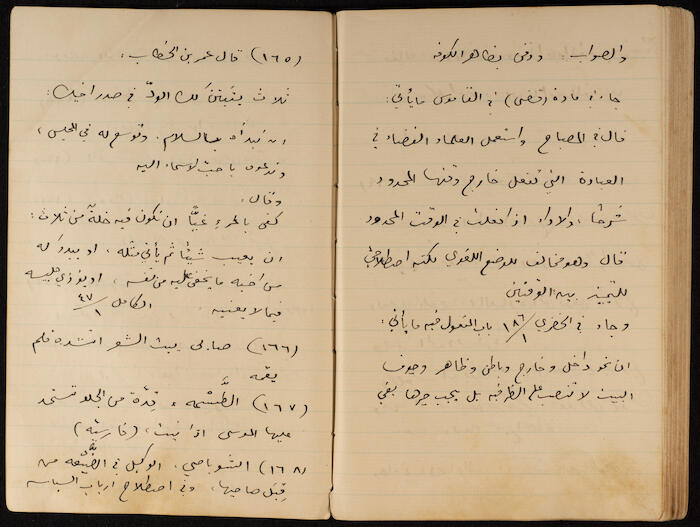 والصواب : ودفن بظاهر الكوفه
جاء في مادة (قضى) في القاموس ما يأتي :
قال في المصباح واستعمل العلماء القضاء في
العبادة التي تفعل خارج وقتها المحدود
شرعًا ، والاداء اذا فعلت في الوقت المحدود
قال وهو مخالف للوضع اللغوي لكنه اصطلاحي
للتمييز بين الوقتين
وجاء في الخضري ١٨٦/١ باب المفعول فيه ما يأتي :
ان نحو داخل وخارج وباطن وظاهر وجوف
البيت لا تنصب على الظرفيه بل يجب جرها بفي
(١٦٥) قال عمر بن الخطاب :
ثلاث يثبتن لك الودّ في صدر اخيك :
ان تبدأه بالسلام . وتوسع له في المجلس ،
وتدعوه باحب الاسماء اليه
وقال :
كفى بالمرء غيًّا ان تكون فيه خلّة من ثلاث :
ان يعيب شيئًا ثم يأتي مثله ، او يبدو له
من اخيه ما يخفى عليه من نفسه ، او يؤذي جليسه
فيما لا يعنيه . الكامل ٤٧/١
(١٦٦) صابى بيت الشعر انشده فلم
يقمه
(١٦٧) الطَّسْمه ، قدّة من الجلد تستحد
عليها الموسى اذا نبت ، (فارسيّه)
(١٦٨) الشوباصي ، الوكيل في الضَّيْعه من
قِبَل صاحبها ، وفي اصطلاح ارباب السياسه